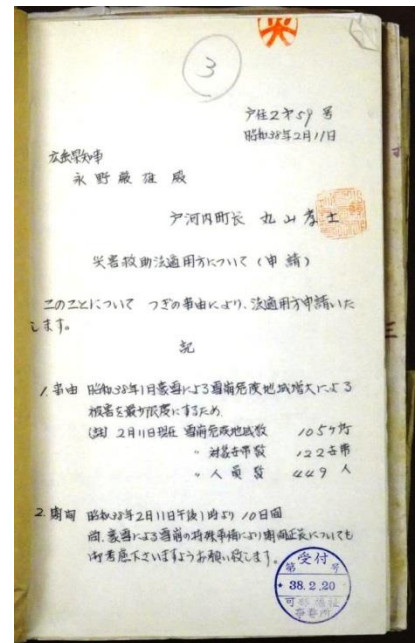 3
戸住2才59号
昭和38年2月11日
広島県知事
永野厳雄殿
戸河内町長 丸山孝士
災害救助法適用方について(申請)
このことについて つぎの事由により、法適用方申請いた
します。
記
1. 事由 昭和38年1月豪雪による雪崩危険地域増大による
被害を最少限度にするため
2月11日現在 雪崩危険地域数 105ヶ所
〃 対象世帯数 122世帯
〃 人員数 449人
2. 期間 昭和38年2月11日午後1時より10日間
尚、豪雪による雪崩の特殊事情により期間延長についても
御考慮下さいますようお願い致します。
受付
第 号
38.2.20
可部福祉
事務所